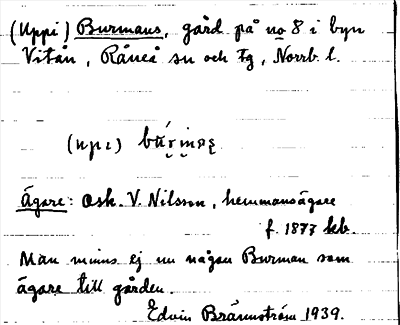 (Uppi) Burmans, gård på no 8 i byn
Vitån, Råneå sn och tg, Norrb. l.
(upi)
Ägare: Osk. V. Nilsson, hemmansägare
f. 1877 kb.
Man minns ej nu någon Burman som
ägare till gården.
Edvin Brännström 1939.